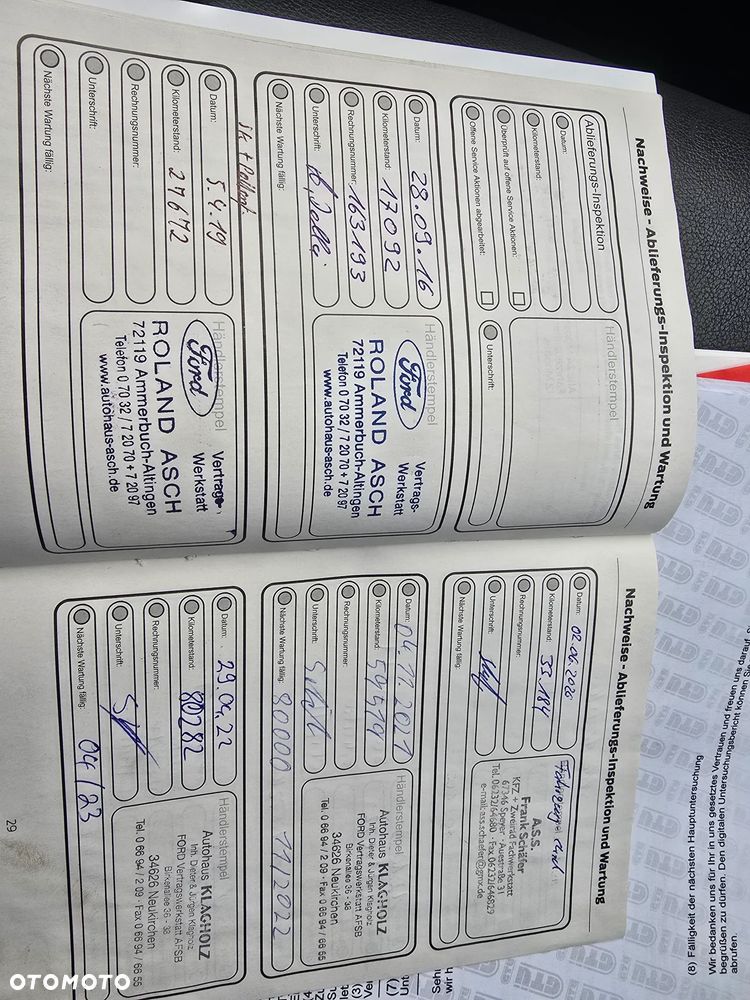 Nachweise - Ablieferungs-Inspektion und Wartung
Ablieferungs-Inspektion
Datum:
Kilometerstand:
Überprüft auf offene Service Aktionen:
Offene Service Aktionen abgearbeitet:
Händlerstempel
Unterschrift:
Datum: 28.09.16
Kilometerstand: 17092
Rechnungsnummer: 163193
Unterschrift:
Nächste Wartung fällig:
Händlerstempel
Ford Vertrags-
Werkstatt
ROLAND ASCH
72119 Ammerbuch-Altingen
Telefon 0 70 32 / 7 20 70 + 7 20 97
www.autohaus-asch.de
Datum: 5.4.19
Kilometerstand: 27672
Rechnungsnummer:
Unterschrift:
Nächste Wartung fällig:
Händlerstempel
Ford Vertrags-
Werkstatt
ROLAND ASCH
72119 Ammerbuch-Altingen
Telefon 0 70 32 / 7 20 70 + 7 20 97
www.autohaus-asch.de
Nachweise - Ablieferungs-Inspektion und Wartung
Datum: 02.06.2020
Kilometerstand: 33184
Rechnungsnummer:
Unterschrift:
Nächste Wartung fällig:
A.S.S.
Frank Schäfer
KFZ + Zweirad Fachwerkstatt
67346 Speyer - Auestraße 31
Tel. 06232/64680 - Fax 06232/646829
e-mail: ass.schaefer@gmx.de
Datum: 04.11.2021
Kilometerstand: 59519
Rechnungsnummer:
Unterschrift:
Nächste Wartung fällig: 80000 11/2022
Händlerstempel
Autohaus KLAGHOLZ
Inh. Dieter & Jürgen Klagholz
FORD Vertragswerkstatt AFSB
Birkenallee 36 - 38
34626 Neukirchen
Tel. 0 66 94 / 2 09 - Fax 0 66 94 / 66 55
Datum: 29.04.22
Kilometerstand: 80282
Rechnungsnummer:
Unterschrift:
Nächste Wartung fällig: 04/23
Händlerstempel
Autohaus KLAGHOLZ
Inh. Dieter & Jürgen Klagholz
FORD Vertragswerkstatt AFSB
Birkenallee 36 - 38
34626 Neukirchen
Tel. 0 66 94 / 2 09 - Fax 0 66 94 / 66 55
29
(8) Fälligkeit der nächsten Hauptuntersuchung
Wir bedanken uns für Ihr in uns gesetztes Vertrauen und freuen uns darauf,
begrüßen zu dürfen. Den digitalen Untersuchungsbericht können Sie
abrufen.
OTOMOTO